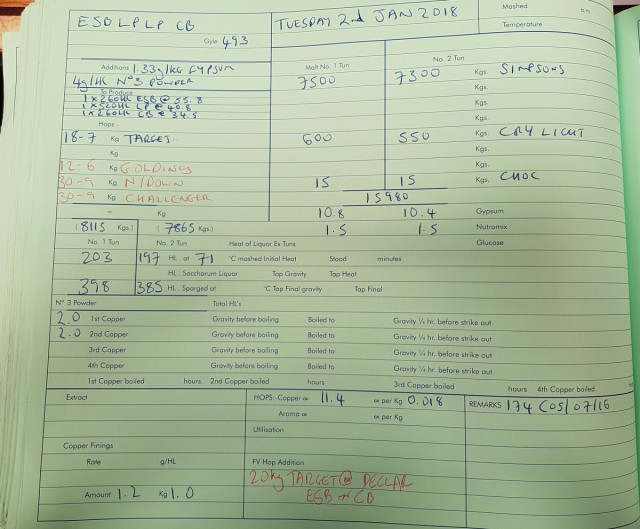 ESB LP LP CB
TUESDAY 2nd JAN 2018
Mashed a.m.
Gyle 493
Temperature
Additions 1.33g/KG GYPSUM
Malt No. 1 Tun No. 2 Tun
4g/HL No3 POWDER
7500 7300 Kgs. SIMPSONS
To Produce
1 x 260HL ESB @ 55.8
Kgs.
1 x 520HL LP @ 40.8
Kgs.
1 x 260HL CB @ 34.5
Kgs.
Hops -
18-7 Kg TARGET
600 550 Kgs. CRY LIGHT
Kg
Kgs.
12-6 Kg GOLDINGS
Kgs.
30-9 Kg N/DOWN
15 15 Kgs. CHOC
30-9 Kg CHALLENGER
15980
= Kg
10.8 10.4 Gypsum
(8115 Kgs.) (7865 Kgs.)
1.5 1.5 Nutromix
No. 1 Tun No. 2 Tun Heat of Liquor Ex Tuns Glucose
203 197 HL. at 71 °C mashed Initial Heat Stood minutes
HL. Saccharum Liquor Tap Gravity Tap Heat
398 385 HL. Sparged at °C Tap Final gravity Tap Final
No 3 Powder Total HL's
2.0 1st Copper Gravity before boiling Boiled to Gravity ¼ hr. before strike out
2.0 2nd Copper Gravity before boiling Boiled to Gravity ¼ hr. before strike out
3rd Copper Gravity before boiling Boiled to Gravity ¼ hr. before strike out
4th Copper Gravity before boiling Boiled to Gravity ¼ hr. before strike out
1st Copper boiled hours 2nd Copper boiled hours 3rd Copper boiled hours 4th Copper boiled
Extract
HOPS:-Copper α 11.4 α per Kg 0.018
REMARKS 174 COS/07/16
Aroma α α per Kg
Utilisation
Copper Finings
Rate g/HL
FV Hop Addition
20kg TARGET @ DECLAR
ESB → CB
Amount 1.2 Kg 1.0